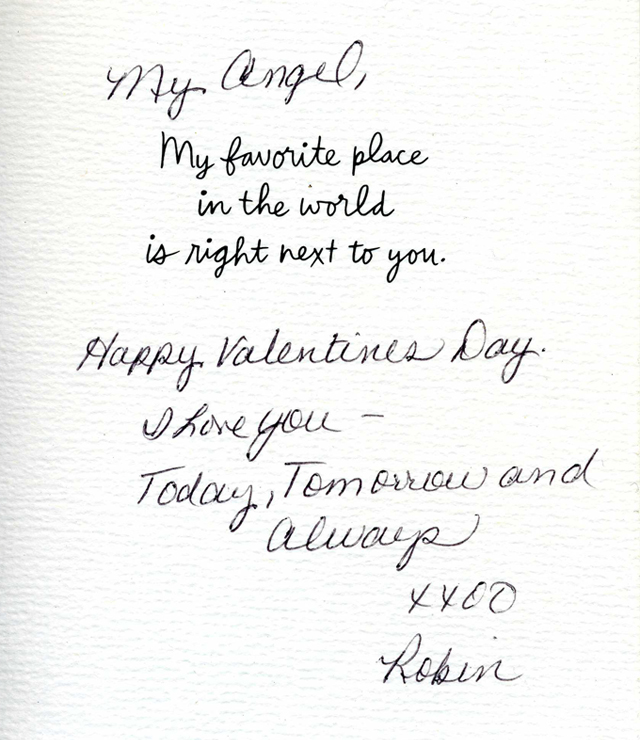 My Angel,
My favorite place
in the world
is right next to you.
Happy Valentines Day.
I Love you –
Today, Tomorrow and
Always
xxoo
Robin